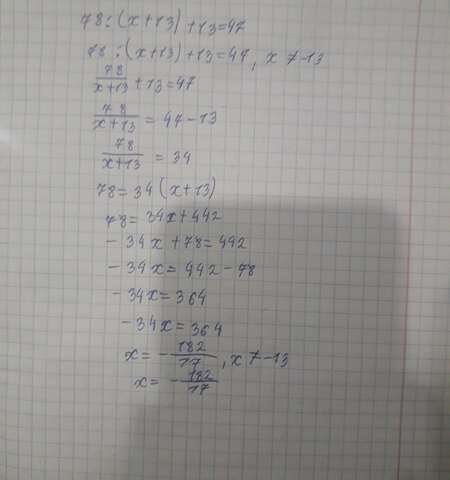 78:(x+13)+13=47
78:(x+13)+13=47, x ≠ -13
78/x+13 + 13=47
78/x+13 = 47-13
78/x+13 = 34
78=34(x+13)
78=34x+442
-34x+78=442
-34x=442-78
-34x=364
-34x=364
x=-182/17, x ≠ -13
x= -182/17